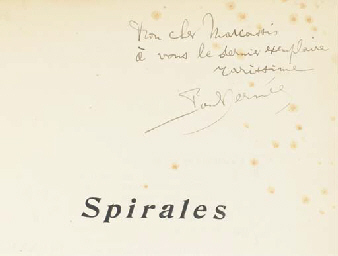 Mon cher Marcassis
à vous le dernier exemplaire
rarissime
Paul Dermée
Spirales